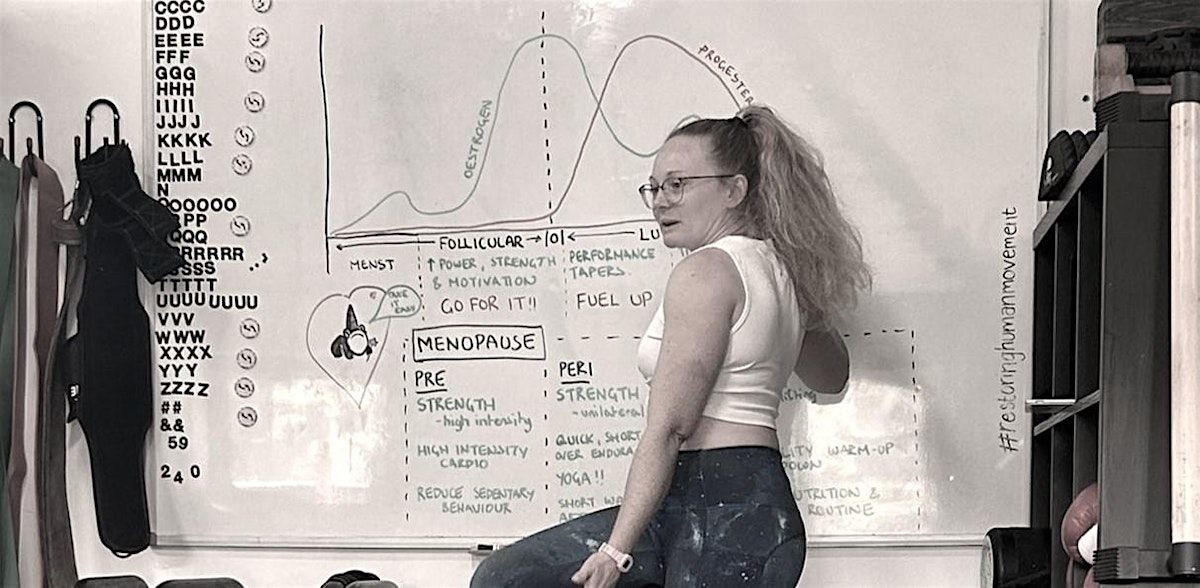 CCCC
DDD
EEEE
FFF
GGG
HHH
IIIII
JJJJ
KKKK
LLLL
MMM
N
OOOOOO
PP
QQQ
RRRRRR
SSSS
TTTTT
UUUUUUUU
VVV
WWW
XXXX
YYY
ZZZZ
##
&&
59
240
OESTROGEN
PROGESTER
FOLLICULAR
101
LU
MENST
↑ POWER, STRENGTH
& MOTIVATION
GO FOR IT!!
PERFORMANCE
TAPERS.
FUEL UP
TAKE
IT
EASY
MENOPAUSE
PRE
STRENGTH
-high intensity
HIGH INTENSITY
CARDIO
REDUCE SEDENTARY
BEHAVIOUR
PERI
STRENGTH
-unilateral
QUICK, SHORT
OVER ENDURA
YOGA!!
SHORT WA
LITY WARM-UP
DOWN
UTRITION &
ROUTINE
#restoringhumanmovement